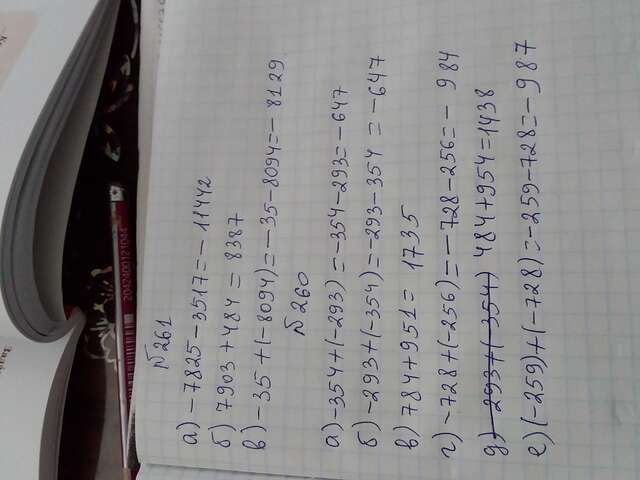 2042400121044
№261
а) -7825-3517=-11442
б) 7903+484=8387
в) -35+(-8094)=-35-8094=-8129
№260
а) -354+(-293)=-354-293=-647
б) -293+(-354)=-293-354=-647
в) 784+951=1735
г) -728+(-256)=-728-256=-984
д) -293+(-354) 484+954=1438
е) (-259)+(-728)=-259-728=-987